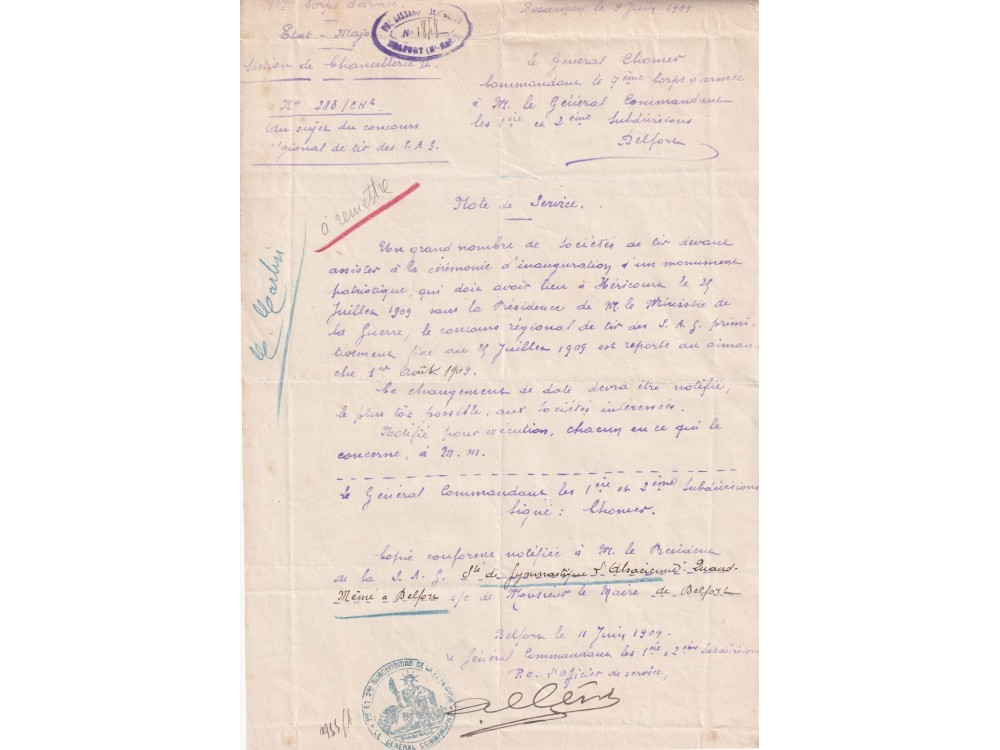 Corps d'armée
Etat-Maj
Section de Chancellerie II.
No 283/CH2
au sujet du concours
régional de tir des S.A.G.
COMMISSARIAT DE
No 1818
BELFORT (Ht-Rhin)
Besançon le 9 Juin 1909
Le Général Chomer
Commandant le 7ème Corps d'armée
à M. le Général Commandant
les 1ère et 2ème Subdivisions
Belfort
à remettre
Note de Service.
Un grand nombre de Sociétés de tir devant
assister à la cérémonie d'inauguration d'un monument
patriotique, qui doit avoir lieu à Héricourt le 25
Juillet 1909 sous la Présidence de M. le Ministre de
la Guerre, le concours régional de tir des S.A.G. primi-
tivement fixé au 25 Juillet 1909 est reporté au diman-
che 1er Août 1909.
Ce changement de date devra être notifié,
le plus tôt possible, aux sociétés intéressées.
Notifié pour exécution, chacun en ce qui le
concerne, à M.M.
Le Général Commandant les 1ère et 2ème Subdivisions
Signé: Chomer.
Copie conforme notifiée à M. le Président
de la S.A.G. Sté de Gymnastique l'Alsacienne Quand-
Même à Belfort s/c de Monsieur le Maire de Belfort
Belfort le 11 Juin 1909.
Le Général Commandant les 1ère & 2ème Subdivisions
P.O. l'officier de service,
1RE ET 2ME SUBDIVISIONS DE LA 7E REGION
LE GENERAL COMMANDANT